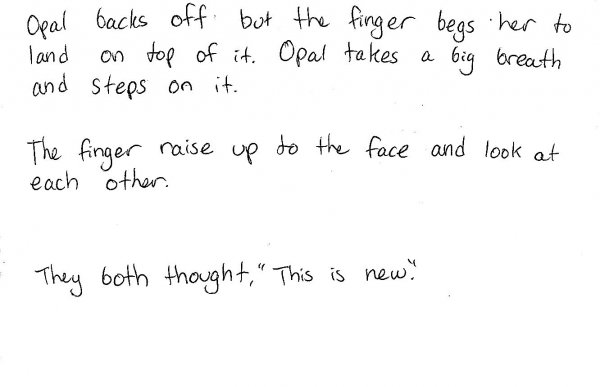 Opal backs off but the finger begs her to
land on top of it. Opal takes a big breath
and steps on it.
The finger raise up to the face and look at
each other.
They both thought, "This is new."